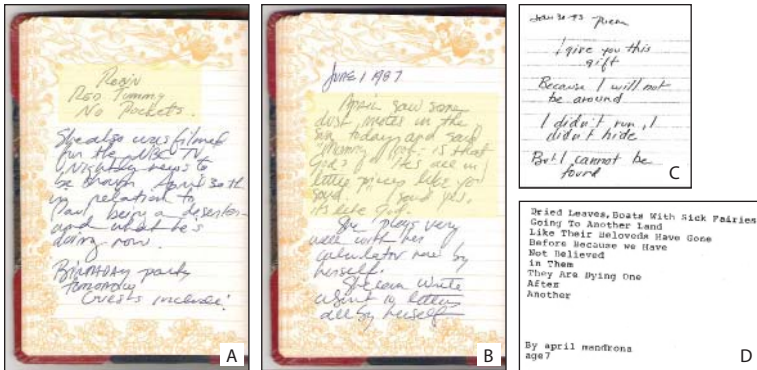 Robin
Red Tummy
No Pockets.
She also was filmed
for the NBC TV
Nightly news to
be shown April 30th
in relation to
Paul being a deserter
and what he's
doing now.
Birthday party
tomorrow
Guests include:
A
June 1 1987
April saw some
dust motes in the
sun today and said
"Mommy look - is that
God? Is he all in
little pieces like you
said. I said yes,
its like God.
She plays very
well with her
calculator now by
herself.
She can write
in letters
all by herself
B
Poem
I give you this
gift
Because I will not
be around
I didn't run, I
didn't hide
But I cannot be
found
C
Dried Leaves, Boats With Sick Fairies
Going To Another Land
Like Their Beloveds Have Gone
Before Because we Have
Not Believed
in Them
They Are Dying One
After
Another
By april mandrona
age7
D